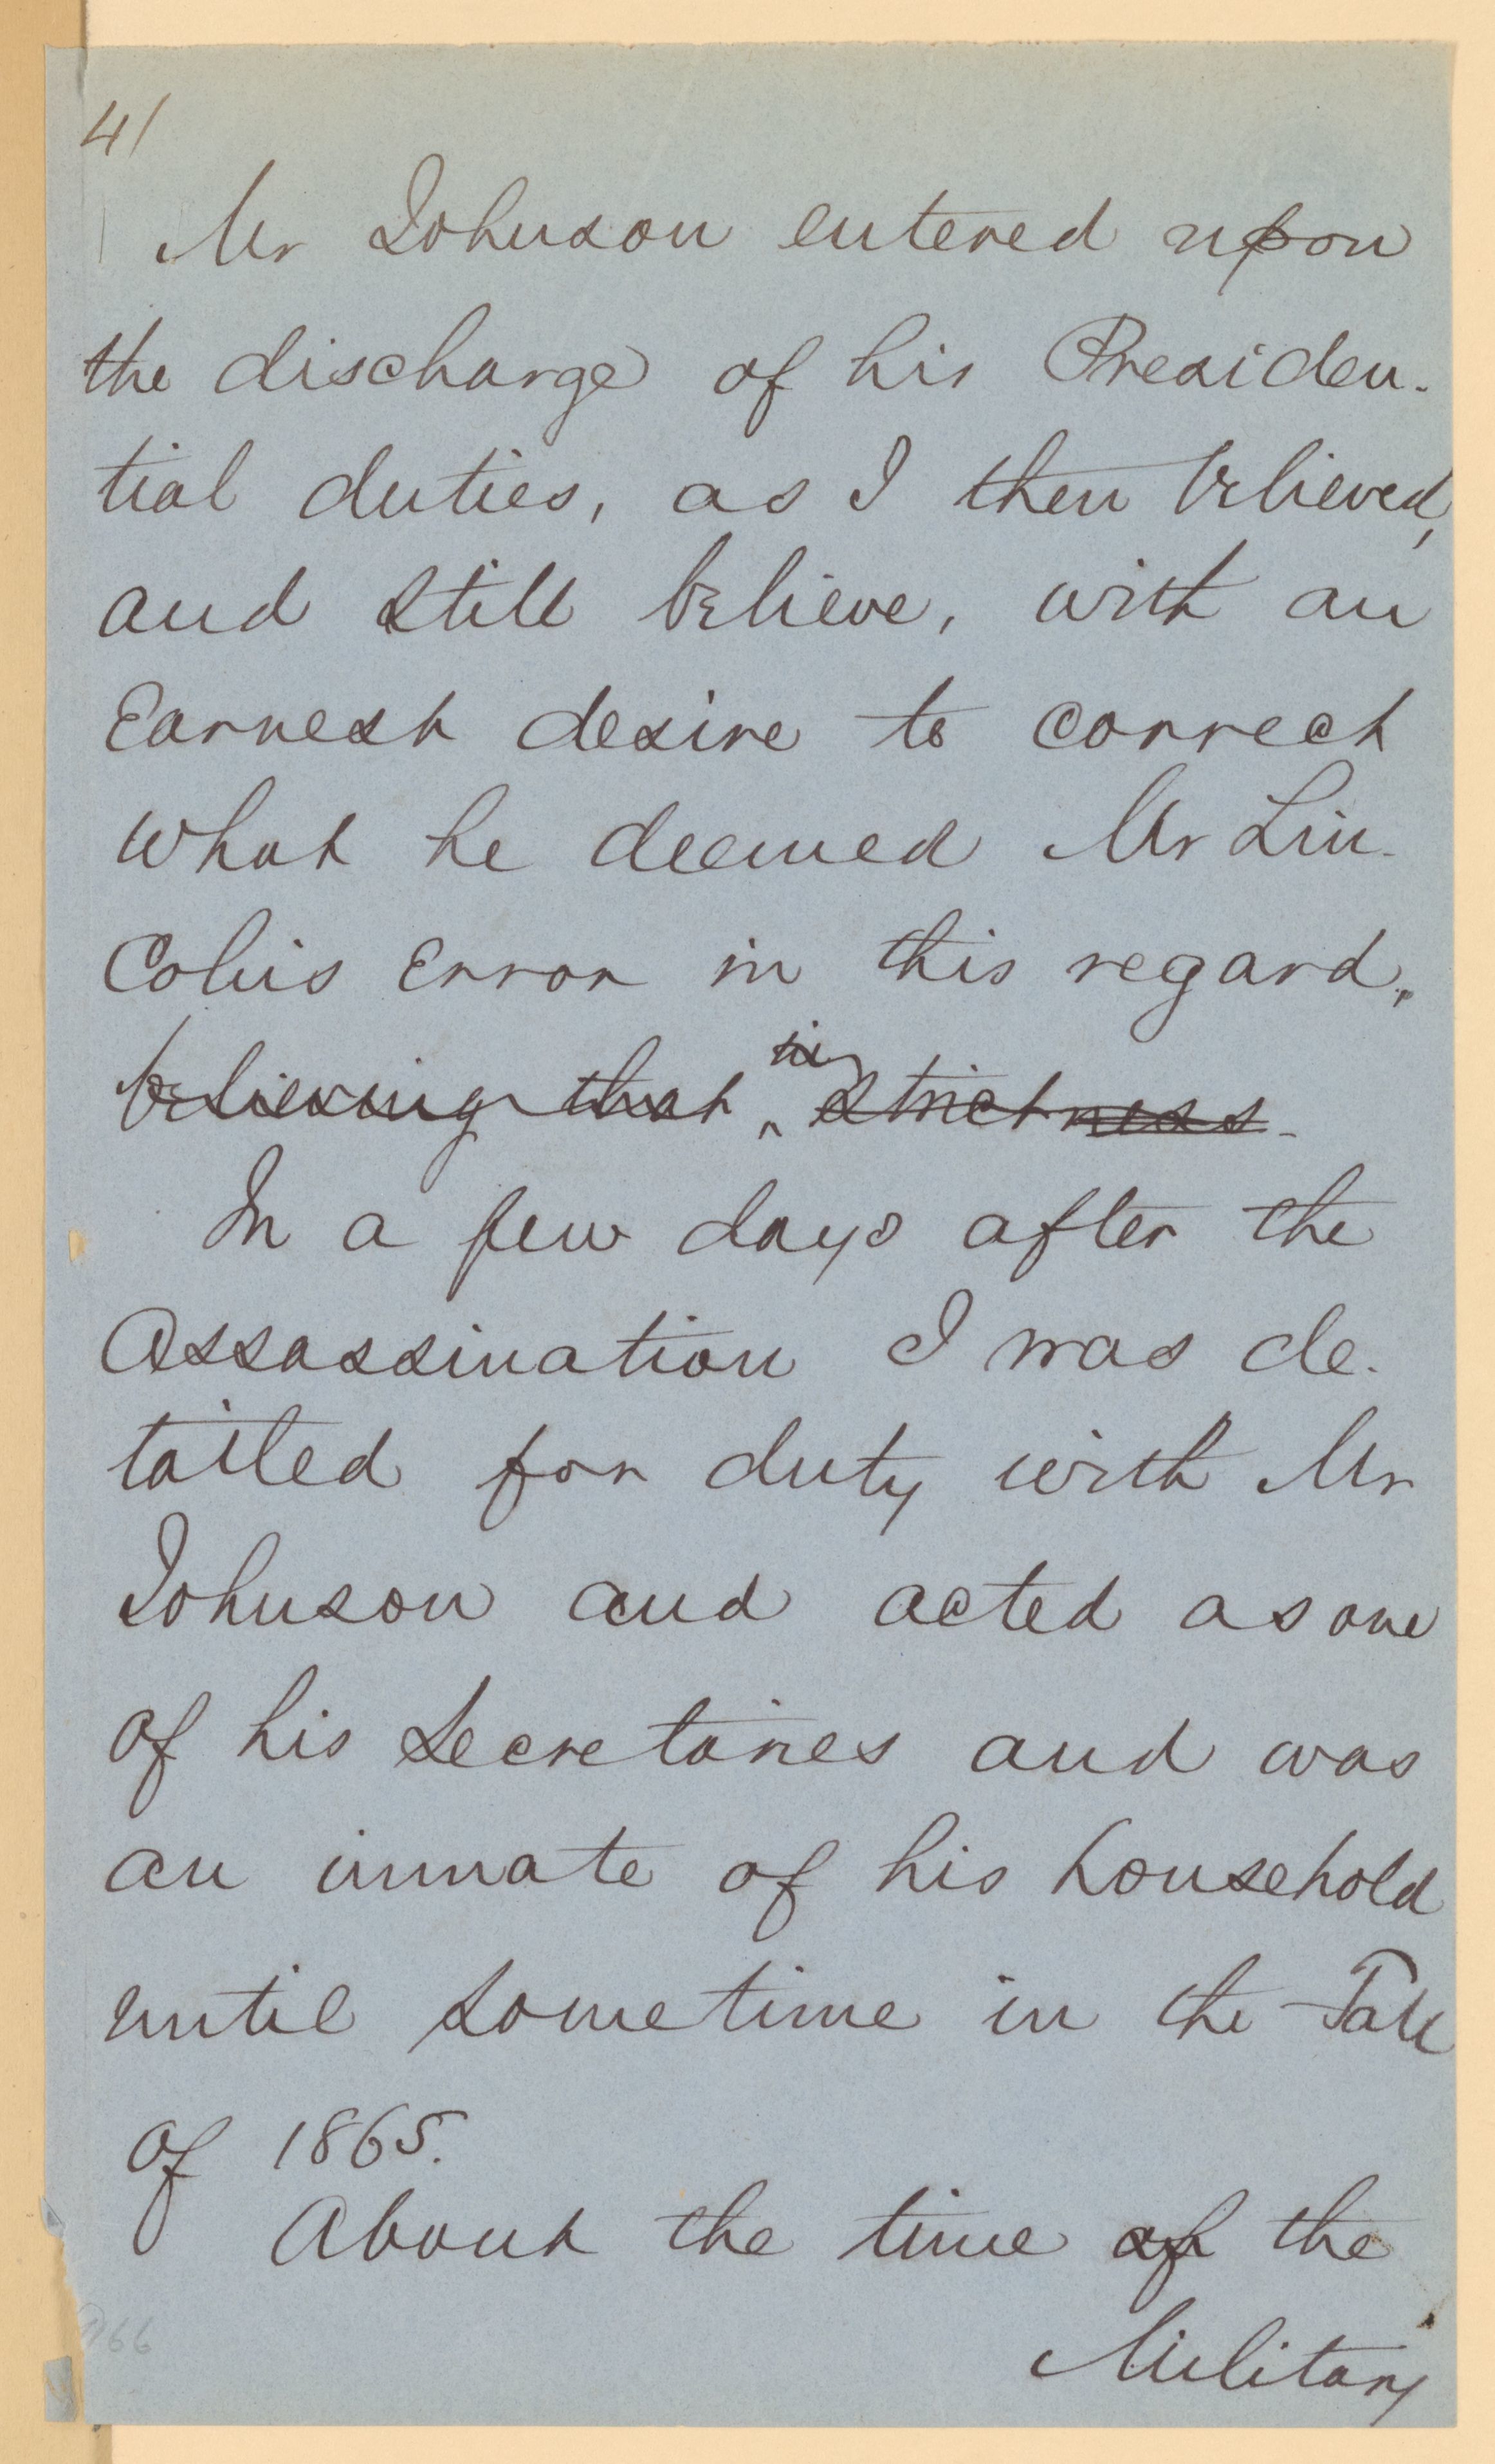 41
Mr Johnson entered upon
the discharge of his Presiden-
tial duties, as I then believed,
and still believe, with an
Earnest desire to correct
what he deemed Mr Lin-
Coln's Error in this regard.
believing that ^in strictness-
In a few days after the
Assassination I was de-
tailed for duty with Mr
Johnson and acted as one
of his Secretaries and was
an inmate of his household
until sometime in the Fall
of 1865.
About the time of the
Military